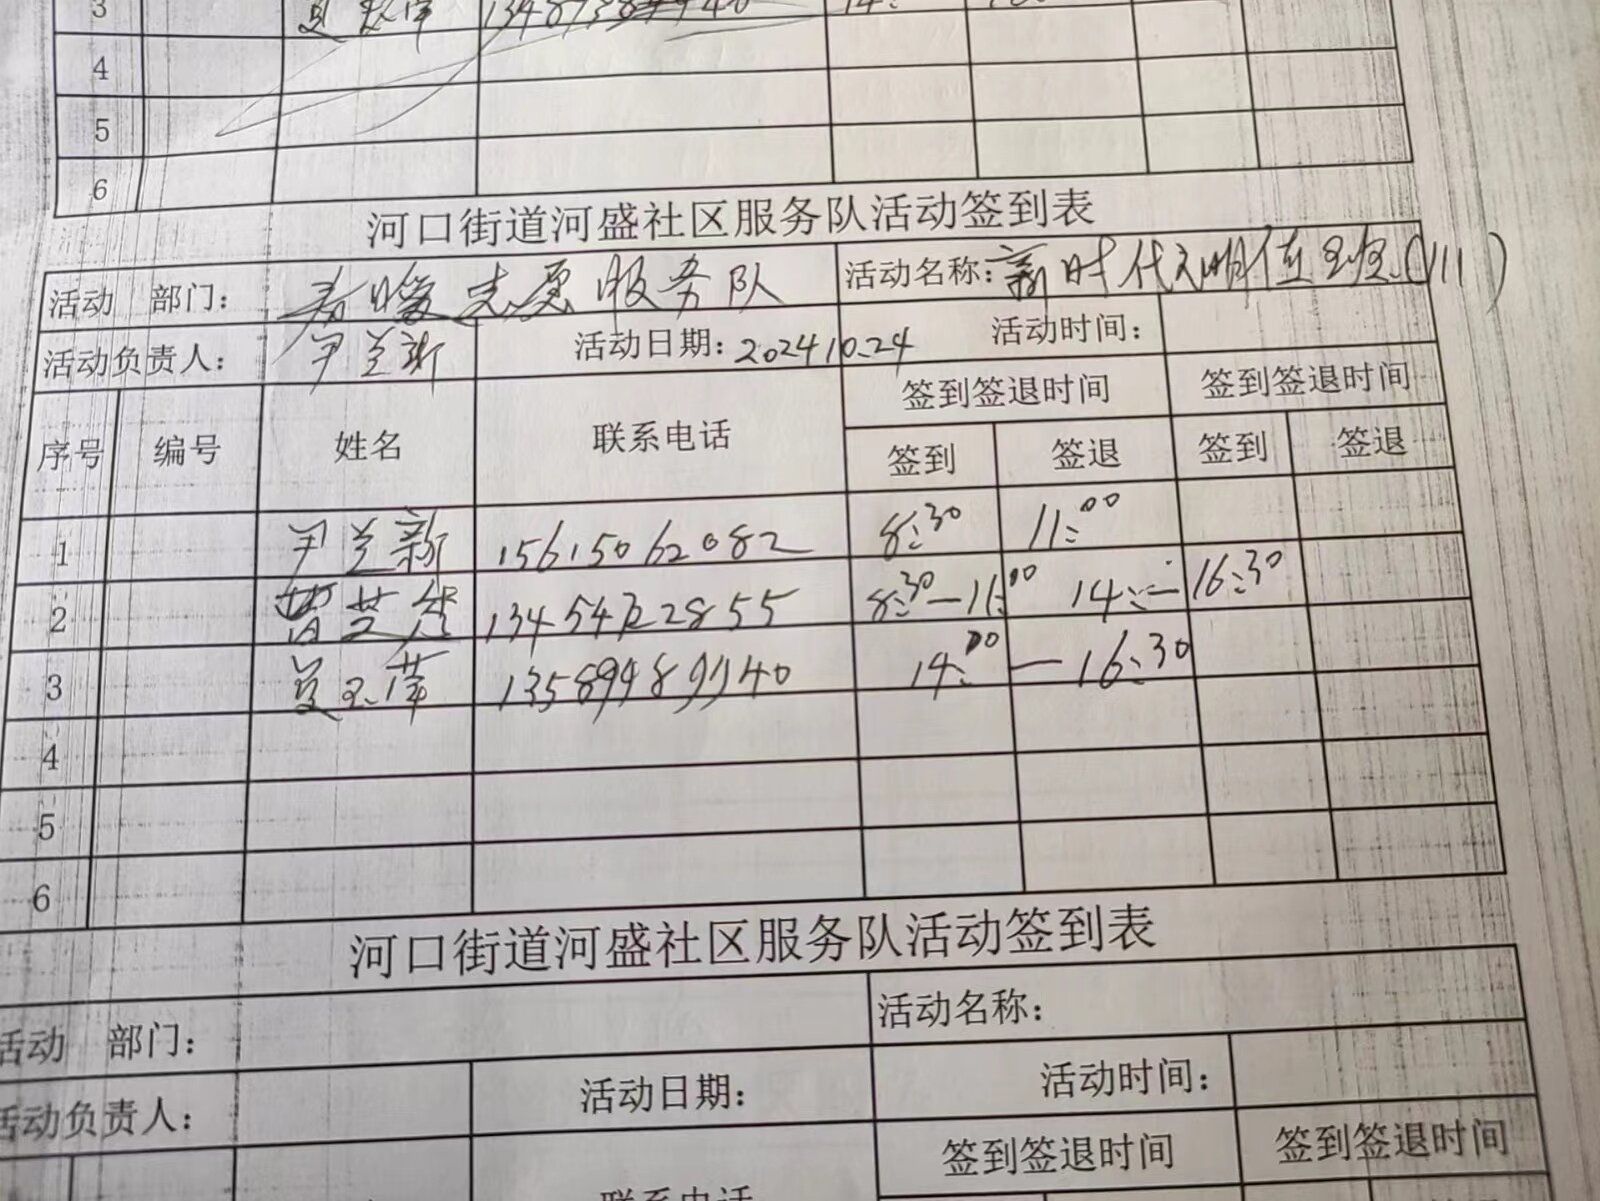 3
4
5
6
河口街道河盛社区服务队活动签到表
活动 部门： 春暖志愿服务队 活动名称：新时代文明值班（111）
活动负责人： 尹兰新 活动日期：2024.10.24 活动时间：
序号 编号 姓名 联系电话 签到签退时间 签到签退时间
签到 签退 签到 签退
1 尹兰新 15615062082 8:30 11:00
2 8:30—11:00 14:—16:30
3 13589989940 14:00—16:30
4
5
6
河口街道河盛社区服务队活动签到表
活动 部门： 活动名称：
活动负责人： 活动日期： 活动时间：
联系电话 签到签退时间 签到签退时间